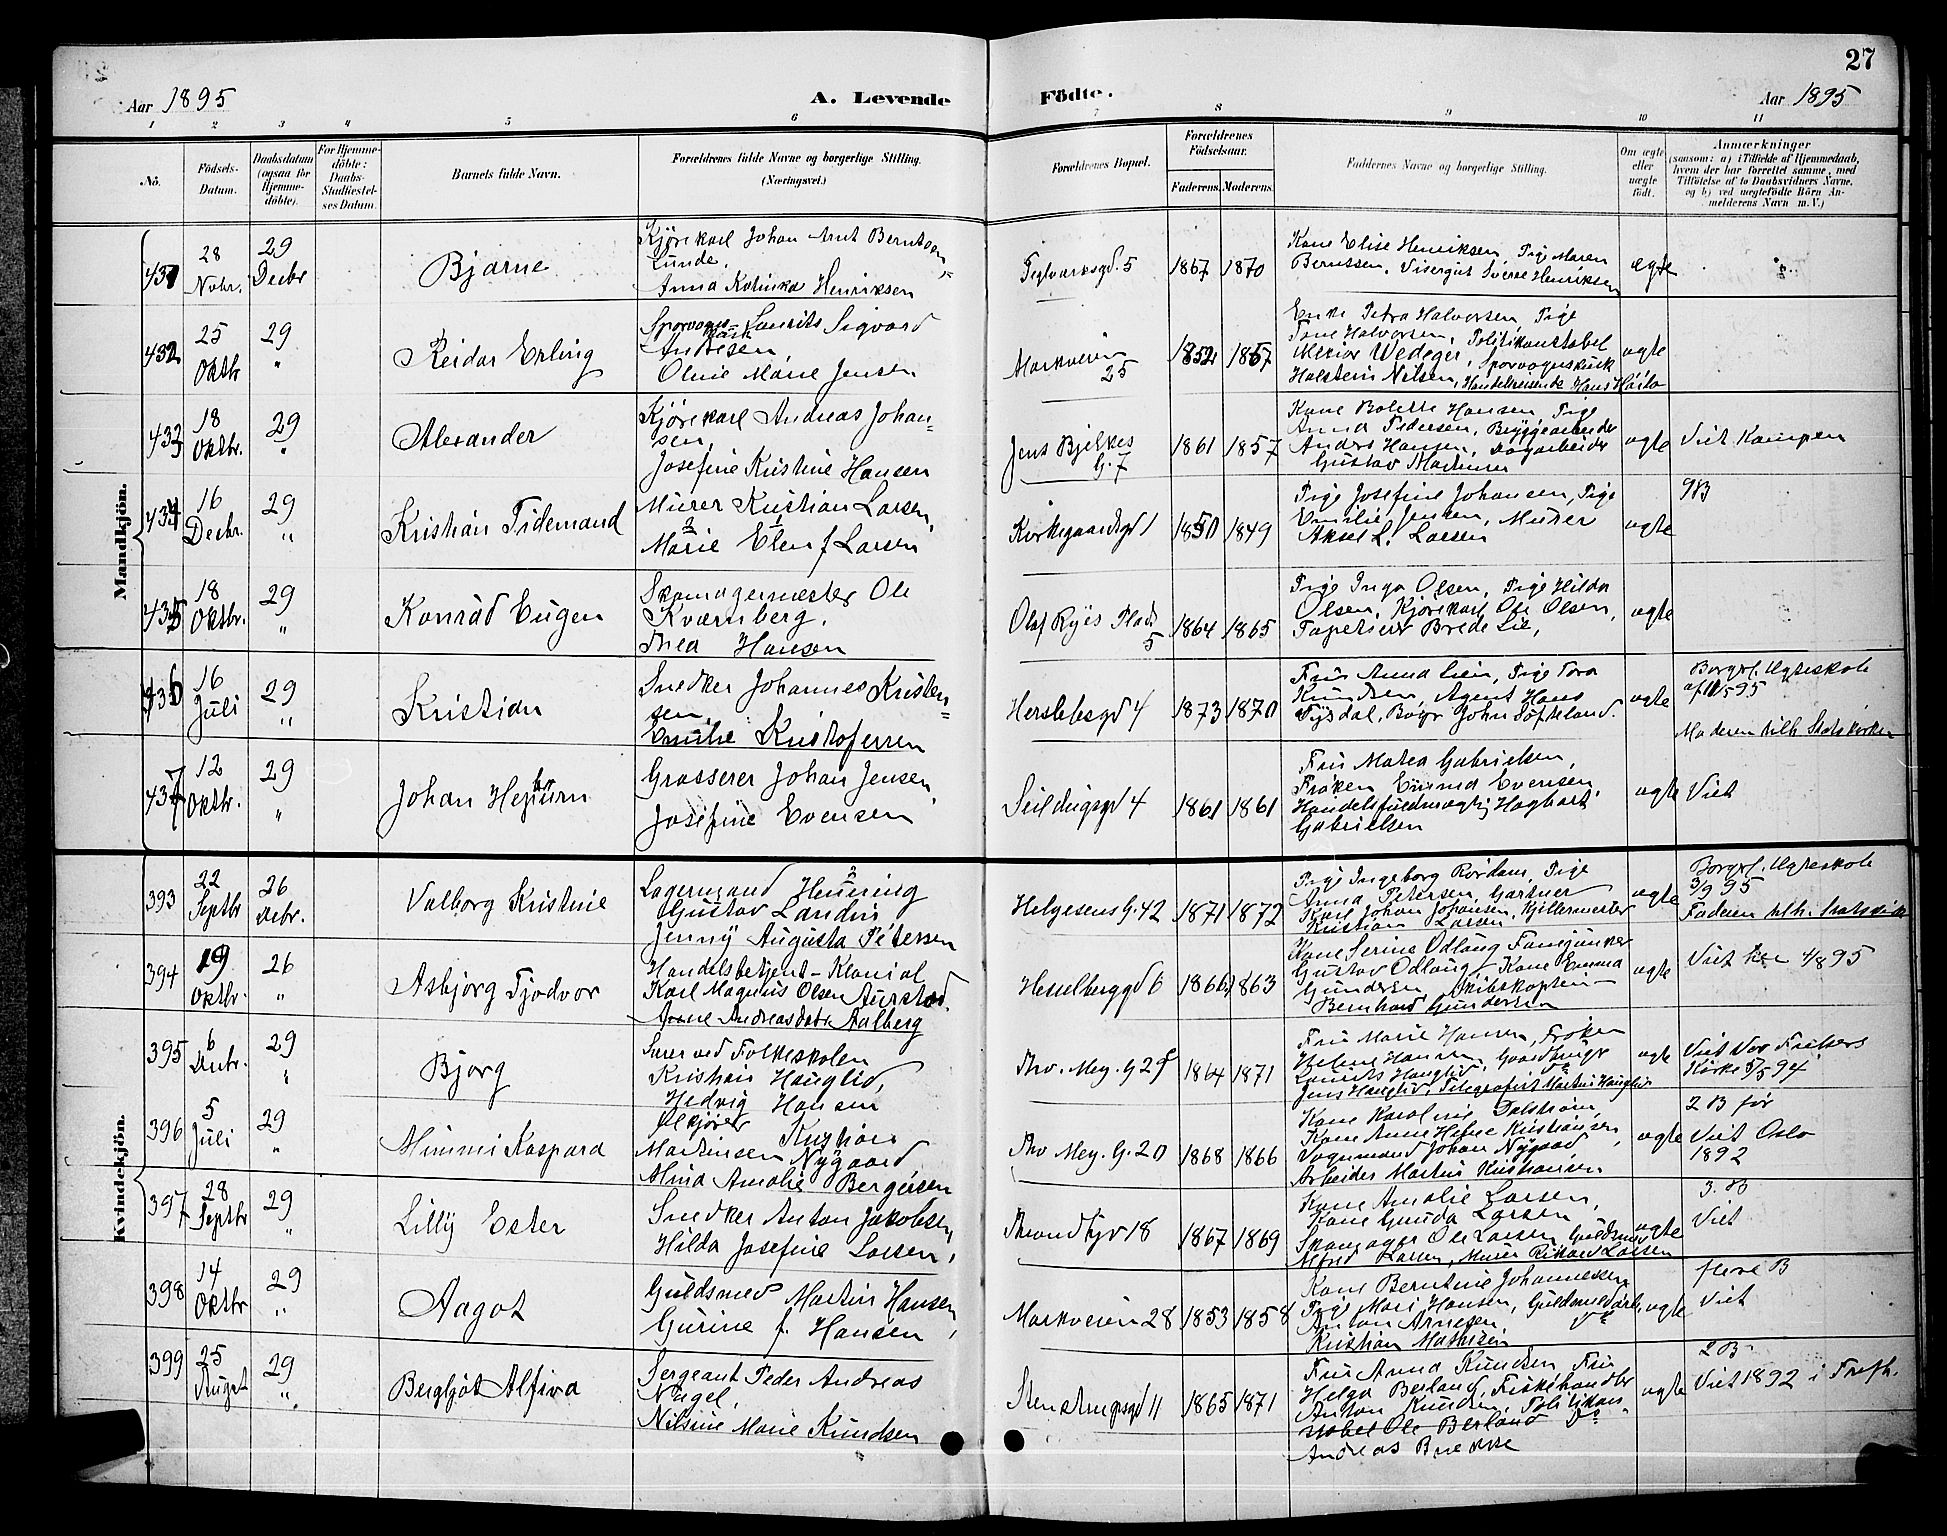 27
Aar 1895
A. Levende Födte.
Aar 1895
1 2 3 4 5 6 7 8 9 10 11
No.
Födsels-Datum.
Daabsdatum (ogsaa for Hjemme-döbte).
For Hjemme-döbte: Daabs-Stadfæstel-ses Datum.
Barnets fulde Navn.
Forældrenes fulde Navne og borgerlige Stilling.
(Næringsvei.)
Forældrenes Bopæl.
Forældrenes Födselsaar.
Faderens. Moderens.
Faddernes Navne og borgerlige Stilling.
Om ægte eller uægte født.
Anmærkninger
(saasom: a) i Tilfælde af Hjemmedaab,
hvem der har forrettet samme, med
Tilföielse af to Daabsvidners Navne,
og b) ved uægtefödte Börn An-
melderens Navn m. V.)
Mandkjön.
431
28 Novbr.
29 Decbr
Bjarne
Kjørekarl Johan Arnt Berntsen
Lunde,
Anna Katinka Henriksen
Teglværksgd. 5
1867 1870
Kone Elise Henriksen, Pige Maren
Berntsen, Visergut Sverre Henriksen
ægte
432
25 Oktbr
29 "
Reidar Erling
Sporvogns-kusk Laurits Sigvard
Andresen,
Oline Marie Jensen
Markveien 25
1852 1857
Enke Petra Halvorsen, Pige
Tone Halvorsen, Politikonstabel
Wedeger, Sporvognskusk
Halstein Nilsen, Handelsreisende Hans
ægte
433
18 Oktbr.
29 "
Alexander
Kjørekarl Andreas Johan-
sen,
Josefine Kristine Hansen
Jens Bjelkes G. 7
1861 1857
Kone Bolette Hansen, Pige
Anna Pedersen, Bryggearbeider
Anders Hansen, Dagarbeider
Gustav
ægte
Viet Kampen
434
16 Decbr.
29 "
Kristian Tidemand
Murer Kristian Larsen,
Marie Elen f. Larsen
Kirkegaardsgd 1
1850 1849
Pige Josefine Johansen, Pige
Emilie Jensen, Murer
Aksel L. Larsen
ægte
9B
435
18 Oktbr.
29 "
Konrad Eugen
Skomagermester Ole
Kværnberg,
Thea Hansen
Olaf Ryes Plads 5
1864 1865
Pige Inga Olsen, Pige Hilda
Olsen, Kjørekarl Ole Olsen,
Tapetserer Brede Lie,
ægte
436
16 Juli
29 "
Kristian
Snedker Johannes Kristen-
sen,
Emilie Kristofersen
Herslebsgd 4
1873 1870
Fru Anna Lien, Pige Tora
Knudsen, Agent Hans
Tysdal, Bogr John Tofteland.
ægte
Borgerl. Ægteskab
Moderen tilh. Statskirken
437
12 Oktbr.
29 "
Johan
Grosserer Johan Jensen,
Josefine Evensen
Seildugsgd 4
1861 1861
Fru Matea Gabrielsen,
Frøken Emma Evensen
Handelsfuldmægtig Hagbart
Gabrielsen
ægte
Viet
Kvindekjön.
393
22 Septbr
26 Decbr.
Valborg Kristine
Lagermand Henning
Gustav Landin,
Jenny Augusta Petersen
Helgesens G. 42
1871 1872
Pige Ingeborg Rørdam, Pige
Anna Petersen, Gartner
Karl Johan Johansen, Kjeldermester
Kristian Larsen
ægte
Borgerl. Ægteskab
3/9 95
Faderen tilh. Statskirk
394
19 Oktbr.
26 "
Asbjørg Fjodvor
Handelsbetjent - Kolonial
Karl Magnus Olsen Aurstad.
Anne Andreasdatr. Aalberg
Hesselberggd 6
1866 1863
Kone Serine Odlaug Fanejunker
Gustav Odlaug, Kone Emma
Gundersen, Skibskaptein
Bernhard Gundersen
ægte
Viet her 4/8 95
395
6 Decbr.
29 "
Bjørg
Lærer ved Folkeskolen
Kristian Hauglid,
Hedvig Hansen
Thv. Mey. G 29
1864 1871
Fru Marie Hansen, Frøken
Helene Hansen, Gaardbruger
Laurits Hauglid,
Jens Hauglid, Telegrafist Martin Hauglid
ægte
Viet Vor Frelsers
Kirke 5/5 94
396
5 Juli
29 "
Mimmi Kaspara
Ølkjører Kristian
Martinsen Nygaard
Alma Amalie Bergersen
Thv Mey. G. 20
1868 1866
Kone Karoline Dalstrøm,
Kone Anne Helene Kristiansen,
Vognmand Johan Nygaard
Arbeider Martin Kristiansen
ægte
2 B før
Viet Oslo
1892
397
28 Septbr
29 "
Lilly Ester
Snedker Anton Jakobsen,
Hilda Josefine Larsen,
Throndhjv 18
1867 1869
Kone Amalie Larsen,
Kone Gunda Larsen
Skomager Ole Larsen, Guldsmed
Alfred Larsen, Murer Rikard Larsen
ægte
3. B
Viet
398
14 Oktbr
29 "
Aagot
Guldsmed Martin Hansen,
Gurine f. Hansen
Markveien 28
1853 1858
Kone Berntine Johannesen
Pige Mari Hansen, Guldsmedarb.
Anton Arnesen,
Kristian Mathisen
ægte
flere B
Viet
399
25 Augst
29 "
Bergljot Alfiva
Sergeant Peder Andreas
Nagel,
Nilsine Marie Knudsen
Stenstrupsgd 11
1865 1871
Fru Anna Knudsen, Fru
Helga Berland, Fiskehandler
Anton Knudsen, Politikon-
stabel Ole Berland
Andreas Brekke
ægte
2 B
Viet 1892 i Trefh.